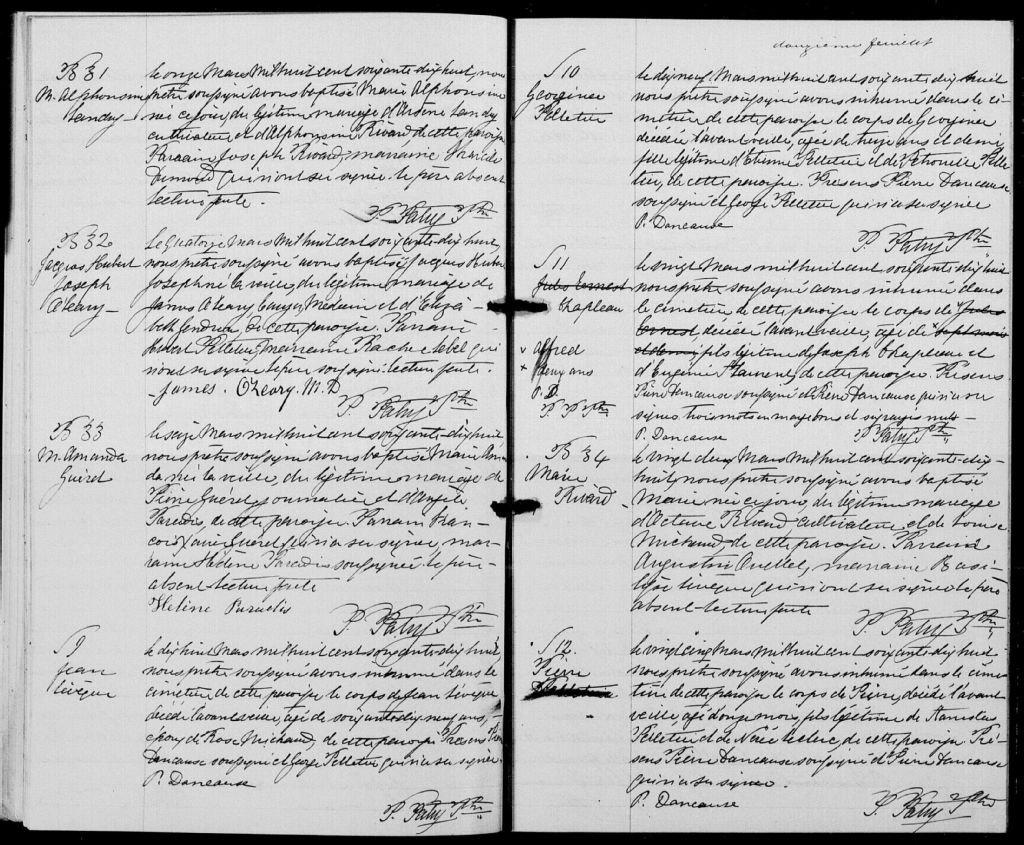 B 31
M. Alphonsine
Landry
le onze Mars mil huit cent soixante dix huit, nous
prêtre soussigné avons baptisé Marie Alphonsine
née ce jour, du légitime mariage d'Arsène Landry
cultivateur et d'Alphonsine Rivard de cette paroisse
Parrain Joseph Rivard, marraine
qui n'ont su signer. le père absent
lecture faite.
P. Patry Ptre
B 32
Jacques Hubert
Joseph
O'Leary
Le quatorze Mars mil huit cent soixante dix huit,
nous prêtre soussigné avons baptisé Jacques Hubert
Joseph né la veille, du légitime mariage de
James O'Leary Ecuyer, Médecin et d'Eliza
beth Gendreau de cette paroisse. Parrain
Hubert Pelletier, marraine Rachel Lebel qui
n'ont su signer le père soussigné. lecture faite.
James. O'Leary. M.D
P. Patry Ptre
B 33
M. Amanda
Guéret
le seize Mars mil huit cent soixante-dix huit,
nous prêtre soussigné avons baptisé Marie Aman
da née la veille, du légitime mariage de
Pierre Guéret, journalier et d'Angèle
Paradis, de cette paroisse. Parrain Fran-
çois Xavier Guéret qui n'a su signer, mar-
raine Hélène Paradis soussignée le père
absent lecture faite
Heline Paradis
P. Patry Ptre
S 9
Jean
Lévêque
le dix huit Mars mil huit cent soixante dix huit
nous prêtre soussigné avons inhumé dans le
cimetière de cette paroisse le corps de Jean Lévêque
décédé l'avant veille, agé de soixante dix neuf ans,
époux de Rose Michaud, de cette paroisse Présens Pierre
Dancause soussigné et George Pelletier qui n'a su signer
P. Dancause
P. Patry Ptre
douzième feuillet
S 10
Georgina
Pelletier
le dix neuf Mars mil huit cent soixante dix huit
nous prêtre soussigné avons inhumé dans le ci-
metière de cette paroisse le corps de Georgina
décédée l'avant veille, agée de treize ans et demi
fille légitime d'Etienne Pelletier et de Pelle
tier, de cette paroisse. Présens Pierre Dancause
soussigné et George Pelletier qui n'a su signer
P. Dancause
P. Patry Ptre
S 11
Jules Ernest
Chapleau
x alfred
x
P. D.
P. P. Ptre
le vingt Mars mil huit cent soixante dix huit
nous prêtre soussigné avons inhumé dans
le cimetière de cette paroisse le corps de Jules
Ernest, décédé l'avant veille, agé de sept mois
et demi fils légitime de Joseph Chapleau et
d'Eugénie St Laurent, de cette paroisse. Présens
Pierre Dancause soussigné et Pierre Dancause qui n'a su
signer trois mots en marge bons et six rayés nuls
P. Dancause
P. Patry Ptre
B 34
Marie
Rivard
le vingt deux Mars mil huit cent soixante-dix
huit, nous prêtre soussigné avons baptisé
Marie née ce jour, du légitime mariage
d'Octave Rivard cultivateur et de Louise
Michaud, de cette paroisse. Parrain
Augustin Ouellet, marraine Basi-
lisse Lévêque qui n'ont su signer le père
absent lecture faite
P. Patry Ptre
S 12.
Pierre
Pelletier
le vingt cinq Mars mil huit cent soixante dix huit
nous prêtre soussigné avons inhumé dans le cime
tière de cette paroisse le corps de Pierre, décédé l'avant
veille agé d'onze mois, fils légitime de Stanislas
Pelletier et de Leclerc, de cette paroisse. Pré-
sens Pierre Dancause soussigné et Pierre Dancause
qui n'a su signer.
P. Dancause
P. Patry Ptre